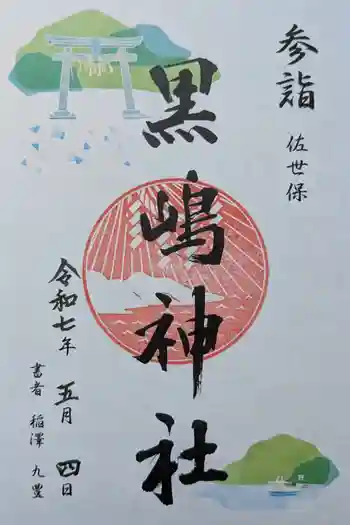 参詣
佐世保
黒嶋神社
令和七年
五月
四日
書者 稲澤 九豊